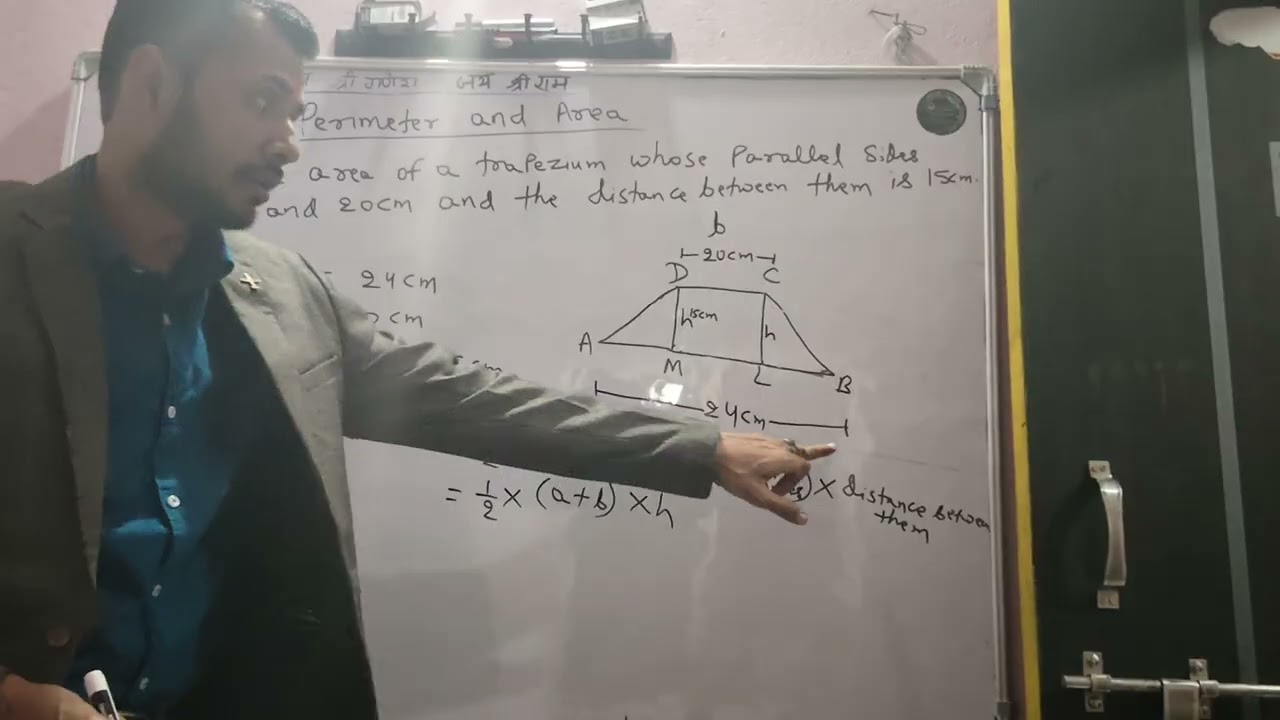 श्री गणेश जय श्री राम
Perimeter and Area
area of a traPezium whose Parallel Sides
and 20cm and the distance between them is 15cm.
b
20cm
D C
24cm
cm
h 15cm h
A
M L B
cm
24cm
= 1/2 × (a+b) × h
) × distance between
them